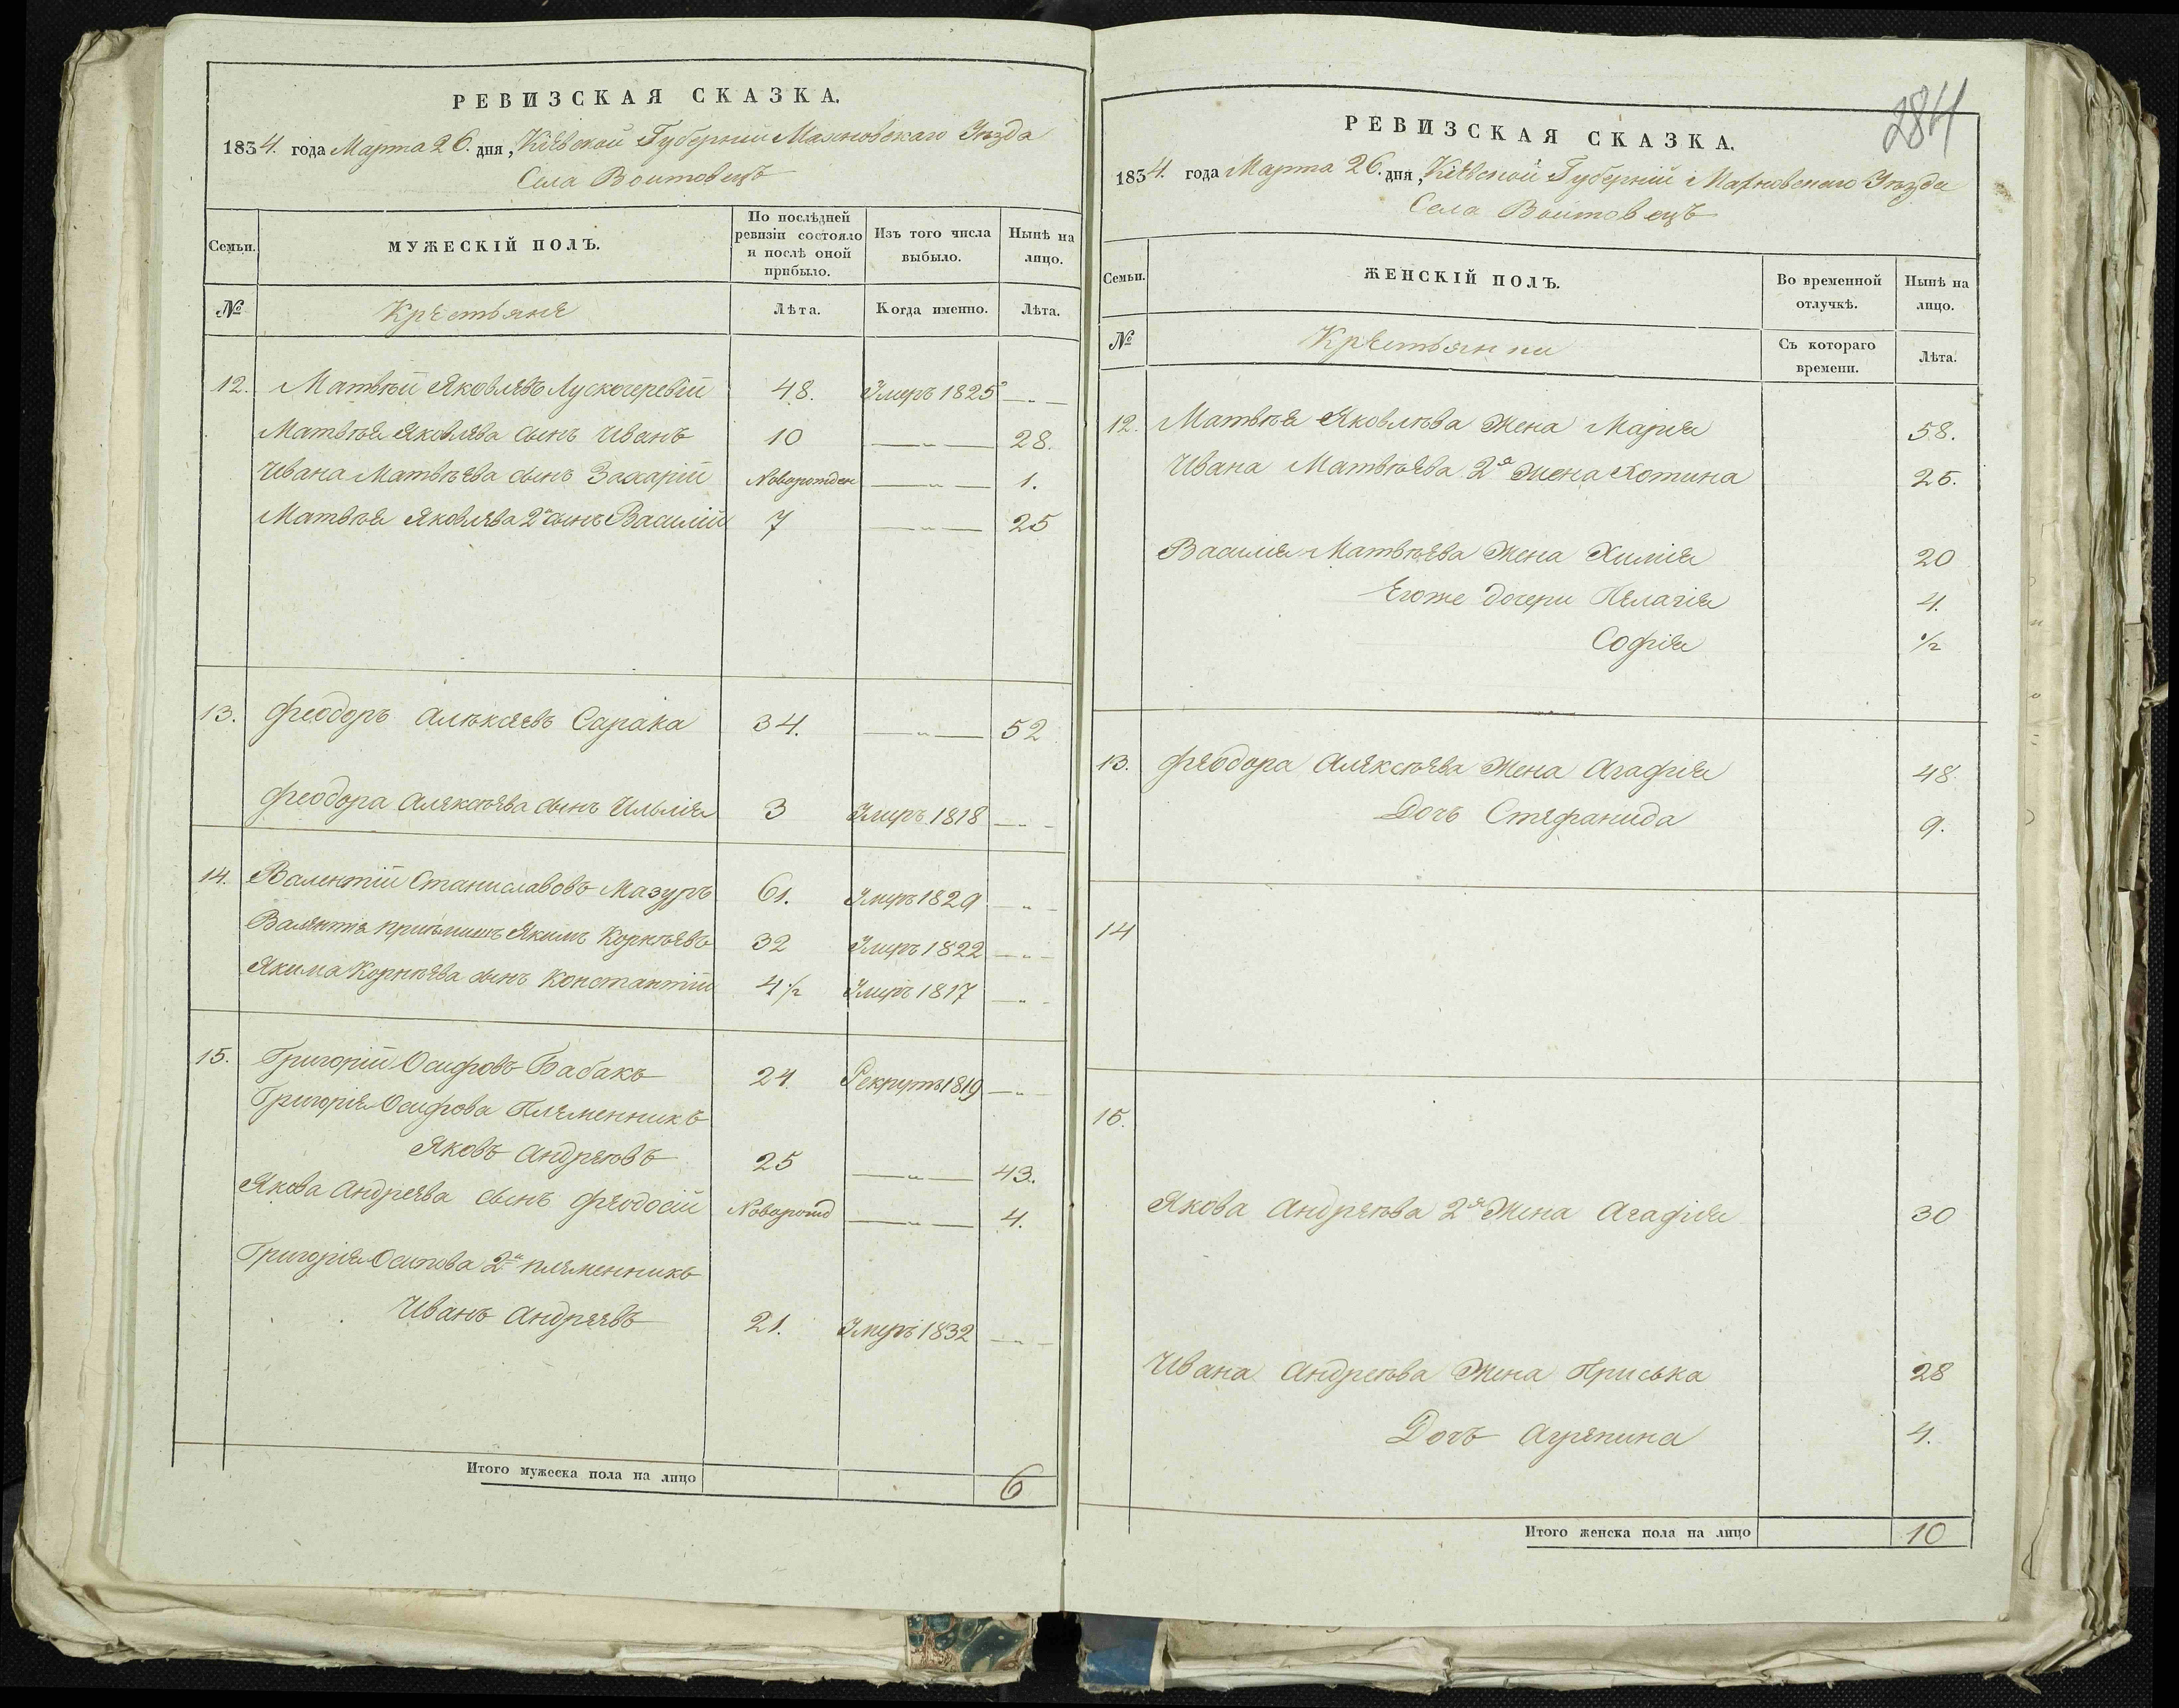 РЕВИЗСКАЯ СКАЗКА.
1834. года Марта 26. дня, Кіевской Губерніи Махновскаго Уѣзда
Села Воитовецъ
Семьи. МУЖЕСКІЙ ПОЛЪ. По послѣдней ревизіи состояло и послѣ оной прибыло. Изъ того числа выбыло. Нынѣ на лицо.
№ Крестьяне Лѣта. Когда именно. Лѣта.
12. Матвѣй Яковлевъ Лускочеревій 48. Умеръ 1825 — " —
Матвѣя Яковлева сынъ Иванъ 10 — " — 28.
Ивана Матвѣева сынъ Захарій Новорожден — " — 1.
Матвѣя Яковлева 2й сынъ Василій 7 — " — 25
13. Феодоръ Алексеевъ Сарака 34. — " — 52
Феодора Алексѣева сынъ Ильлія 3 Умеръ 1818 — " —
14. Валентій Станиславовъ Мазуръ 61. Умеръ 1829 — " —
Валентія пріемишъ Якимъ Корнѣевъ 32 Умеръ 1822 — " —
Якима Корнѣева сынъ Константій 4 1/2 Умеръ 1817 — " —
15. Григорій Осифовъ Бабакъ 24 Рекрутъ 1819 — " —
Григорія Осифова Племенникъ
Яковъ Андреевъ 25 — " — 43.
Якова Андреева сынъ ФеодосійНоворожд — " — 4.
Григорія Осипова 2й племенникъ
Иванъ Андреевъ 21. Умеръ 1832 — " —
Итого мужеска пола на лицо 6
284
РЕВИЗСКАЯ СКАЗКА.
1834. года Марта 26. дня, Кіевской Губерніи Махновскаго Уѣзда
Села Воитовецъ
Семьи. ЖЕНСКІЙ ПОЛЪ. Во временной отлучкѣ. Нынѣ на лицо.
№ Крестьянки Съ котораго времени. Лѣта.
12. Матвѣя Яковлева Жена Марія 58.
Ивана Матвѣева 2я Жена Хотина 25.
Василія Матвѣева Жена Химія 20
Егоже дочери Пелагія 4.
Софія 1/2
13. Феодора Алексѣева Жена Агафія 48.
Дочь Стефанида 9.
14
15.
Якова Андреева 2я Жена Агафія 30
Ивана Андреева Жена Приська 28
Дочь Агрепина 4.
Итого женска пола на лицо 10